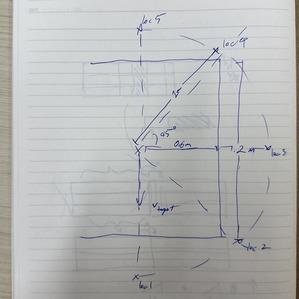 loc5
loc4
45°
0.6m
.2m
loc3
Vtarget
loc2
loc1